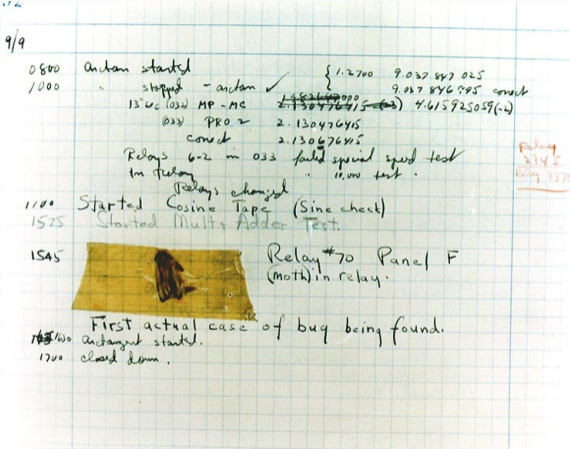 9/9
0800 arctan started { 1.2700 9.037 847 025
1000 " stopped - arctan ✓ 9.037 846 995 correct
13"uc (032) MP-MC 2.130476415 (-3) 4.615925059(-2)
(033) PRO 2 2.130476415
correct 2.130676415
Relays 6-2 in 033 failed special speed test
In Relay " 10,000 test.
Relays changed
1100 Started Cosine Tape (Sine check)
1525 Started Mult + Adder Test.
1545 Relay #70 Panel F
(moth) in relay.
First actual case of bug being found.
1630 arctangent started.
1700 closed down.
Relay